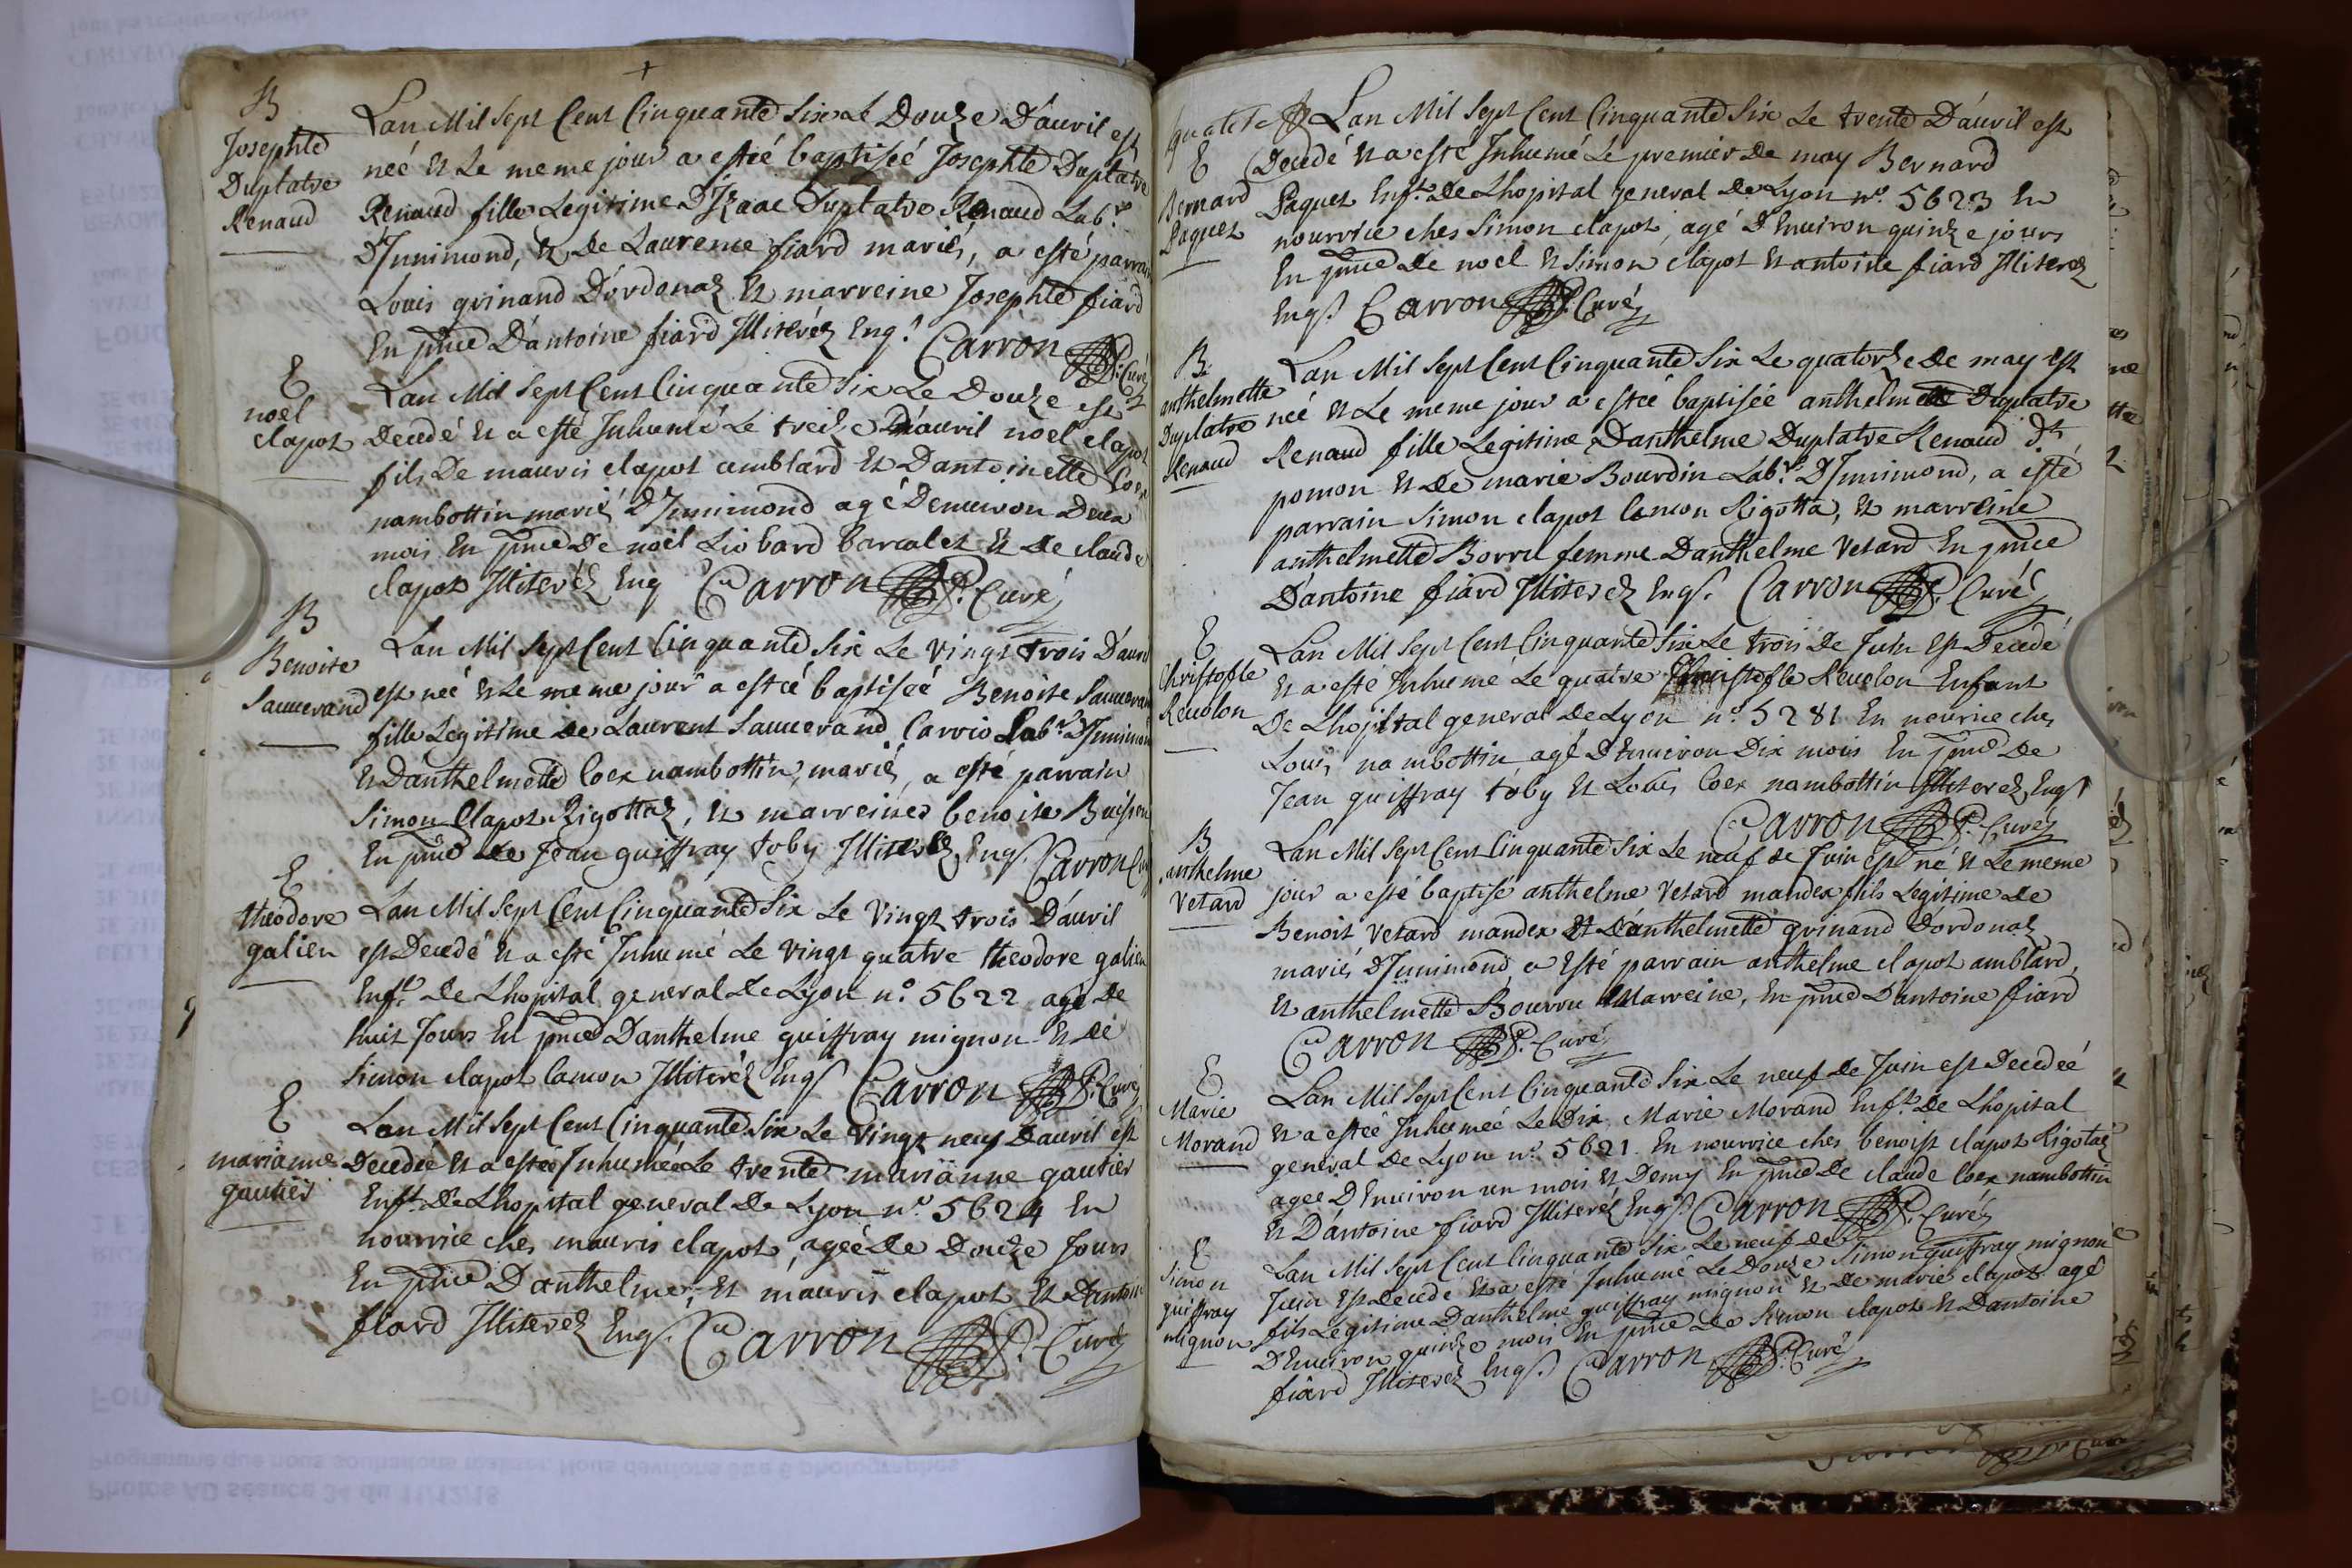 B
Josephte
Duplatre
Renaud
Lan Mil Sept Cent Cinquante Six Le Douze D'auril est
neé et Le meme jour a esteé baptiseé Josephte Duplatre
Renaud fille Legitime D'Izaac Duplatre Renaud Labr.
D'Innimond, et De Laurence fiard mariés, a esté parrain
Louis grinand D'ordonaz et marreine Josephte fiard
En pnce D'antoine fiard Illiteréz Eng. Carron Curé
E
noel
clapot
Lan Mil Sept Cent Cinquante Six Le Douze est
Decedé et a esté Inhumé Le treize D'auril noel clapot
fils De mauris clapot amblard et D'antoinette Coex
nambottin mariés D'Innimond agé Denuiron Deux
mois En pnce De noël Liobard barcalet et De claude
clapot Illiteréz Eng Carron Curé
B
Benoite
Sauuerand
Lan Mil Sept Cent Cinquante Six Le vingt trois D'auril
est neé et Le meme jour a esteé baptiseé Benoite Sauuerand
fille Legitime De Laurent Sauuerand Carrio Labr. D'Innimond
et D'anthelmette Coex nambottin, mariés, a esté parrain
Simon Clapot Rigottaz, et marreine benoite
En pnce De Jean guiffray toby Illiteréz Engs. Carron Curé
E
theodore
galien
Lan Mil Sept Cent Cinquante Six Le vingt trois D'auril
est Decedé et a esté Inhumé Le vingt quatre theodore galien
Enft. De Lhopital general De Lyon n.o 5622 agé De
huit Jours En pnce D'anthelme guiffray mignon et de
Simon clapot lamon Illiteréz Engs Carron Curé
E
marianne
gautier
Lan Mil Sept Cent Cinquante Six Le vingt neuf D'auril est
Decedeé et a esteé Inhumeé Le trente marianne gautier
Enft. De Lhopital general De Lyon n.o 5624 En
nourrice ches mauris clapot, ageé De Douze Jours
En pnce D'anthelme, et mauris clapot et D'antoine
fiard Illiteréz Engs. Carron Curé
E
Bernard
Paquet
Lan Mil Sept Cent Cinquante Six Le trente D'auril est
Decedé et a esté Inhumé Le premier De may Bernard
Paquet Enft. De Lhopital general De Lyon n.o 5623 En
nourrice ches Simon clapot, agé D'Enuiron quinze jours
En pnce De noel et Simon clapot et antoine fiard Illiteréz
Engs. Carron Curé
B
anthelmette
Duplatre
Renaud
Lan Mil Sept Cent Cinquante Six Le quatorze De may est
neé et Le meme jour a esteé baptiseé anthelmette Duplatre
Renaud fille Legitime D'anthelme Duplatre Renaud dt
pomon et De marie Bourdin Labr. D'Innimond, a esté
parrain Simon clapot lamon Rigotta, et marreine
anthelmette Borru femme D'anthelme Vetard En pnce
D'antoine fiard Illiteréz Engs. Carron Curé
E
Christofle
Reuolon
Lan Mil Sept Cent Cinquante Six Le trois De Juin est Decedé
et a esté Inhumé Le quatre Christofle Reuolon Enfant
De Lhopital general De Lyon n.o 5281 En nourice ches
Louis nambottin agé D'Enuiron Dix mois En pnce De
Jean guiffray toby et Louis Coex nambottin Illiteréz Engs
Carron Curé
B
anthelme
Vetard
Lan Mil Sept Cent Cinquante Six Le neuf de Juin est né et Le meme
jour a esté baptisé anthelme Vetard mandex fils Legitime De
Benoit Vetard mandex et D'anthelmette grinand D'ordonaz
mariés D'Innimond a esté parrain anthelme clapot amblard,
et anthelmette Bourru Marreine, En pnce D'antoine fiard
Carron Curé
E
Marie
Morand
Lan Mil Sept Cent Cinquante Six Le neuf De Juin est Decedeé
et a esteé Inhumeé Le Dix Marie Morand Enft. De Lhopital
general De Lyon n.o 5621 En nourrice ches benoist clapot Rigotaz
ageé D'Enuiron un mois et Demy En pnce De claude Coex nambottin
et D'antoine fiard Illiteréz Engs. Carron Curé
E
Simon
guiffray
mignon
Lan Mil Sept Cent Cinquante Six Le neuf de
Juin est Decedé et a esté Inhumé Le Douze Simon guiffray mignon
fils Legitime D'anthelme guiffray mignon et De marie clapot agé
D'Enuiron quinze mois En pnce De Simon clapot et D'antoine
fiard Illiteréz Engs. Carron Curé